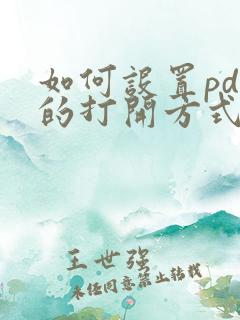 如何設置pd
的打開方式
王世强
未经同意禁止转载